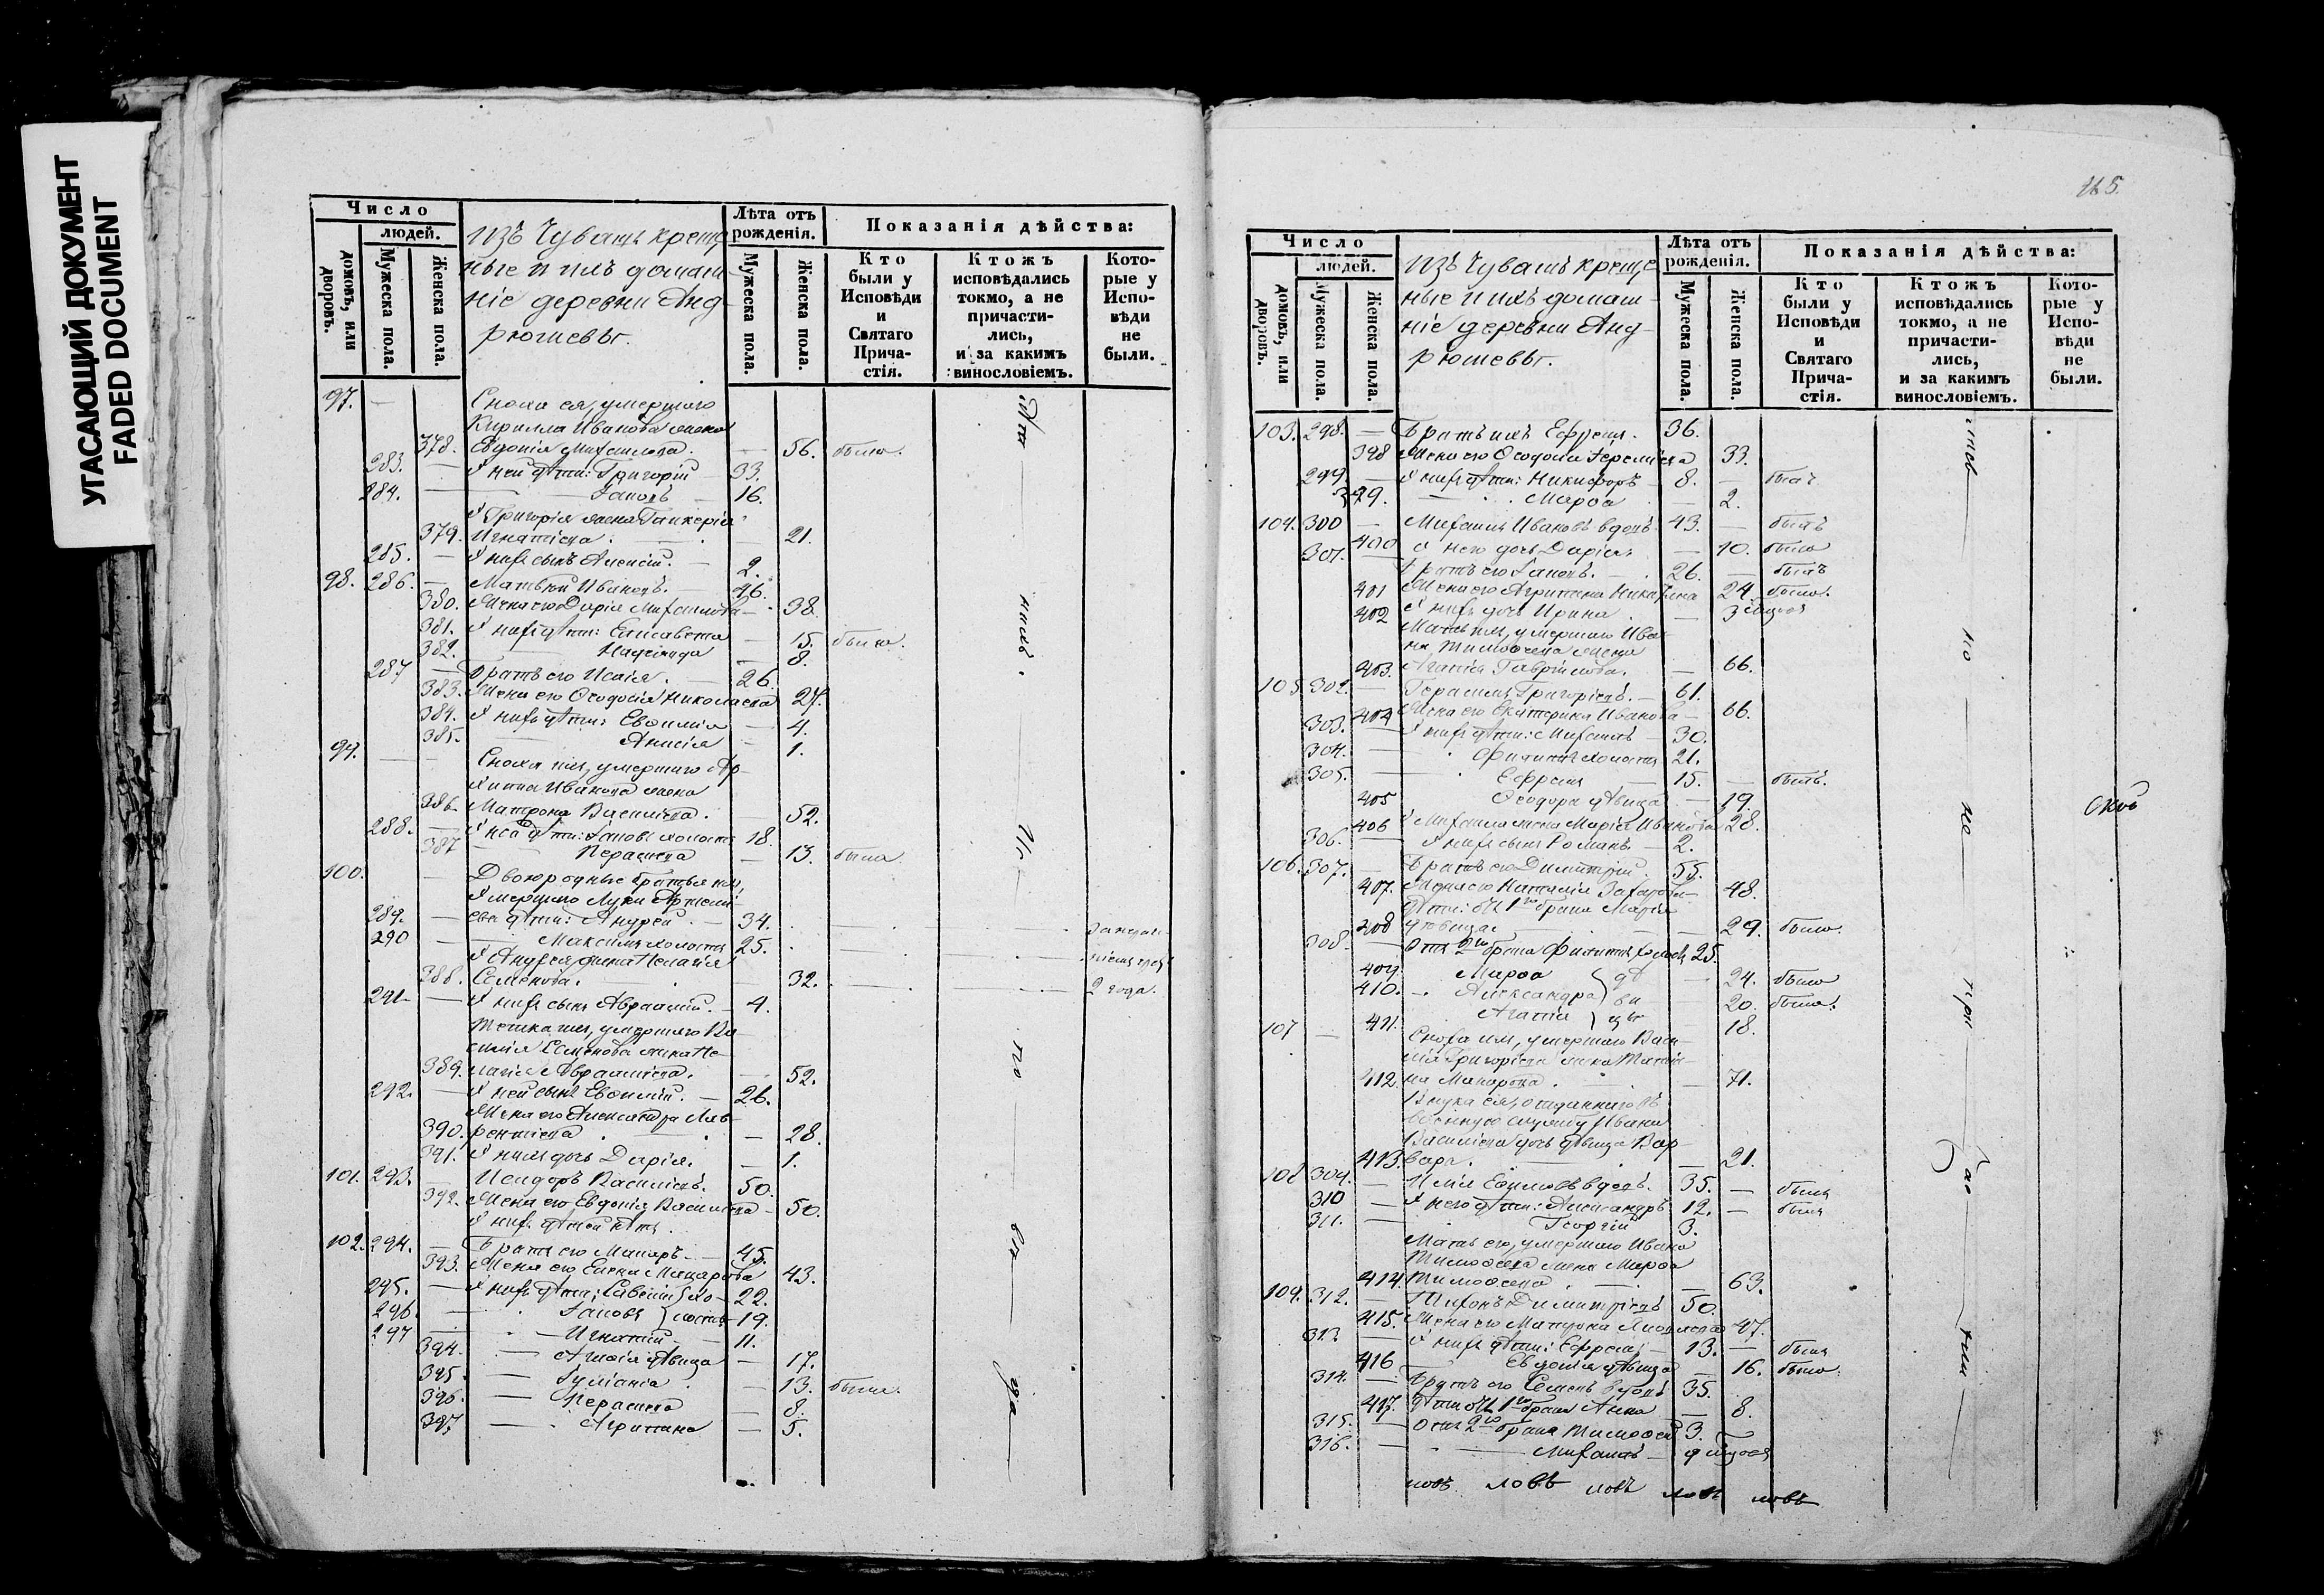 УГАСАЮЩИЙ ДОКУМЕНТ
FADED DOCUMENT
Число
людей.
домовъ, или дворовъ.
Мужеска пола.
Женска пола.
Изъ Чувашъ креще
ные и ихъ домаш-
ніе деревни Анд-
рюшевы.
Лѣта отъ рожденія.
Мужеска пола.
Женска пола.
Показанія дѣйства:
Кто были у Исповѣди и Святаго Прича-стія.
Ктожъ исповѣдались токмо, а не причасти-лись, и за какимъ винословіемъ.
Кото-рые у Испо-вѣди не были.
97. — Сноха ея, умершаго
Кирилла Иванова жена
378. Евдокія Михаилова. — 56. была.
283. — У ней дѣти: Григорій 33.
284. — Іаковъ — 16.
У Григорія жена Гликерія
379. Игнатіева. — 21.
285. — У нихъ сынъ Алексій. — 2.
98. 286. — Матвѣй Ивановъ. — 46.
380. Жена его Дарія Михаилова — 38.
381. У нихъ дѣти: Елисавета — 15. была.
382. Надежда — 8.
287 — Братъ его Исаія. — 26.
383. Жена его Ѳеодосія Николаева 27.
384. У нихъ дѣти: Евѳимія — 4.
385. Анисія — 1.
99. — Сноха имъ, умершаго Ар-
хиппа Иванова жена
386. Матрона Васильева. — 52.
288. — У нея дѣти: Іаковъ холостъ 18.
387 Параскева — 13. была.
100. — Двоюродные братья имъ,
умершаго Луки Артемі-
289. — ева дѣти: Андрей. — 34.
290 — Максимъ холостъ 25.
У Андрея жена Пелагія
388. Семенова. — 32. 2 года.
291 — У нихъ сынъ Авраамій. — 4.
Тетка имъ, умершаго Ва-
силія Семенова жена Пе-
389. лагія Авраамова. — 52.
292. — У ней сынъ Евѳимій. — 26.
Жена его Александра Лав-
390. рентіева — 28.
391. У нихъ дочь Дарія. — 1.
101. 293. — Исидоръ Васильевъ. 50.
392. Жена его Евдокія Васильева — 50.
У нихъ дѣтей нѣтъ.
102. 294. — Братъ его Макаръ. — 45.
393. Жена его Елена Макарова 43.
295. — У нихъ дѣти: Савелій хо- 22.
296. — Іаковъ лосты 19.
297 — Игнатій — 11.
394. — Агаѳія дѣвица — 17.
395. — Іуліанія — 13. была.
396. — Параскева — 8.
397. — Агрипина — 5.
115.
Число
людей.
домовъ, или дворовъ.
Мужеска пола.
Женска пола.
Изъ Чувашъ креще
ные и ихъ домаш-
ніе деревни Анд-
рюшевы.
Лѣта отъ рожденія.
Мужеска пола.
Женска пола.
Показанія дѣйства:
Кто были у Исповѣди и Святаго Прича-стія.
Ктожъ исповѣдались токмо, а не причасти-лись, и за какимъ винословіемъ.
Кото-рые у Испо-вѣди не были.
103. 298. — Братъ ихъ Ефремъ. 36.
398 Жена его Ѳеодосія Іереміева 33.
299. — У нихъ дѣти: Никифоръ — 8. — былъ
399. Марѳа — 2.
104. 300 — Михаилъ Ивановъ вдовъ 43. — былъ
400 У него дочь Дарія — 10. была
301. — Братъ его Іаковъ. — 26. — былъ
401 Жена его Агрипина Никитина 24. была.
402 У нихъ дочь Ирина — 3
Мать имъ, умершаго Ива-
на Тимоѳеева жена
403. Агапія Гавріилова. — 66.
105 302. — Герасимъ Григорьевъ. — 61.
404 Жена его Екатерина Иванова — 66.
303. — У нихъ дѣти: Михаилъ — 30.
304. — Филиппъ холостъ 21.
305. — Ефремъ — 15. — былъ.
405 Ѳеодора дѣвица — 19.
406 У Михаила жена Марія Иванова 28.
306. — У нихъ сынъ Романъ — 2.
106. 307. — Братъ его Димитрій. 55.
407. Жена его Наталія Захарова — 48.
Дѣти: отъ 1го брака Марія
408 дѣвица — 29. была.
308. — Отъ 2го брака Филиппъ холостъ 25.
409. Марѳа дѣ — 24. была
410. Александра ви — 20. была.
411. Агапія цы — 18.
107 — Сноха имъ, умершаго Васи-
лія Григорьева жена Татіа-
412. на Макарова. — 71.
Внука ея, отданнаго въ
военную службу Ивана
Васильева дочь дѣвица Вар-
413. вара. — 21.
108 309. — Илія Евѳимовъ вдовъ. 35. — былъ
310 — У него дѣти: Александръ 12. — былъ
311. — Георгій 3.
Мать его, умершаго Ивана
Тимоѳеева жена Марѳа
414. Тимоѳеева — 63.
109. 312. — Тихонъ Димитріевъ 50.
415. Жена его Матрона 47.
313. — У нихъ дѣти: Ефремъ 13. — былъ
416 Евдокія дѣвица 16. была.
314. — Братъ его Семенъ вдовъ 35.
417. Дѣти отъ 1го брака Анна — 8.
315. — Отъ 2го брака Тимоѳей 3.
316. — Михаилъ
новъ ловъ ловъ ловъ ловъ